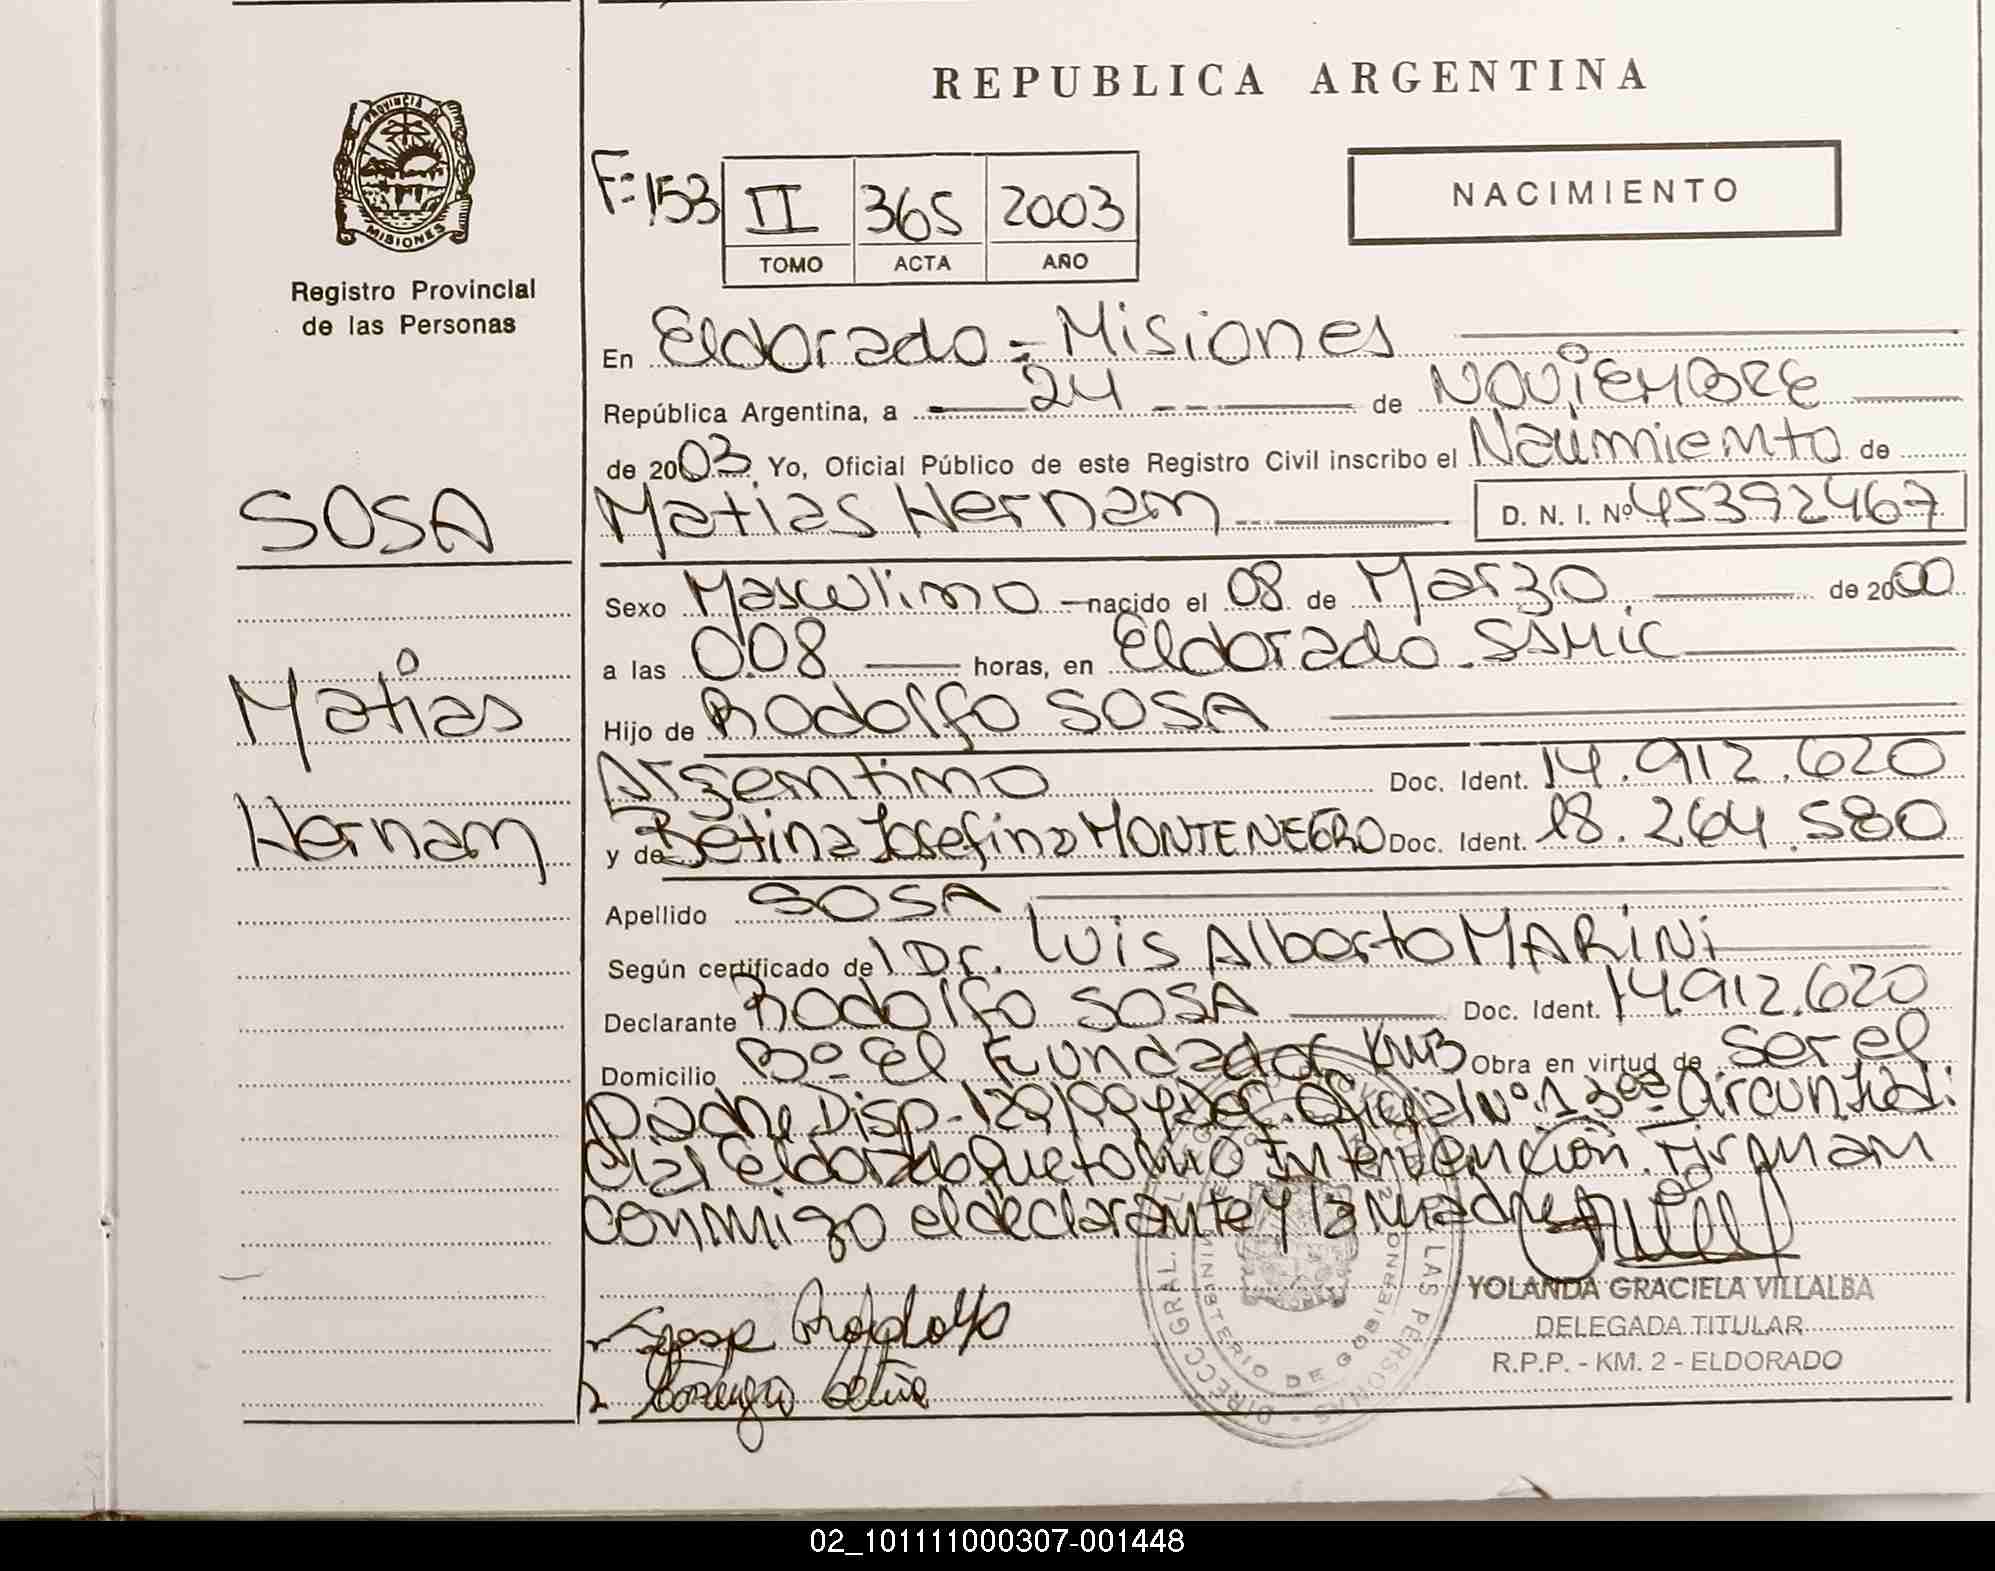 REPUBLICA ARGENTINA
PROVINCIA DE
MISIONES
Registro Provincial
de las Personas
F=153
II 365 2003
TOMO ACTA AÑO
NACIMIENTO
En Eldorado = Misiones
República Argentina, a 24 de NOViEMBRE
de 2003. Yo, Oficial Público de este Registro Civil inscribo el Nacimiento de
SOSA
Matias Hernan D. N. I. Nº 45392467
Sexo Masculino nacido el 08 de Marzo. de 2000
a las 0.08 horas, en Eldorado. SAMIC
Matias
Hijo de Rodolfo SOSA
Argentino Doc. Ident. 14.912.620
Hernan
y de Betina Josefina MONTENEGRO Doc. Ident. 18.264.580
Apellido SOSA
Según certificado del Dr. Luis Alberto MARiNi
Declarante Rodolfo SOSA Doc. Ident. 14.912.620
Domicilio Bº El Fundador KM3 Obra en virtud de Ser el
padre, Disp. Oficial Nº 1 3era Circunscri
cial Eldorado que tomó Intervención. Firman
conmigo el declarante y la madre
YOLANDA GRACIELA VILLALBA
DELEGADA TITULAR
R.P.P. - KM. 2 - ELDORADO
DIRECC. GRAL. LAS PERSONAS
MINISTERIO DE GOBIERNO
02_101111000307-001448